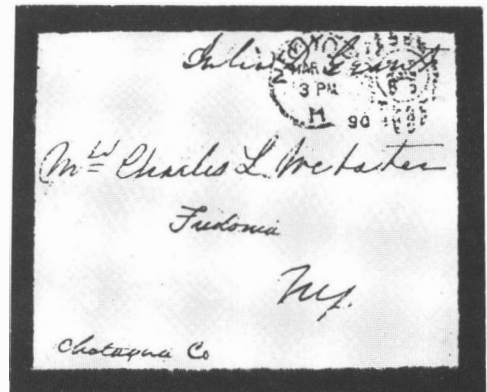 Julia D. Grant
MAR
3 PM
M 90
Mrs Charles L. Webster
Fredonia
Ny.
Chotauqua Co